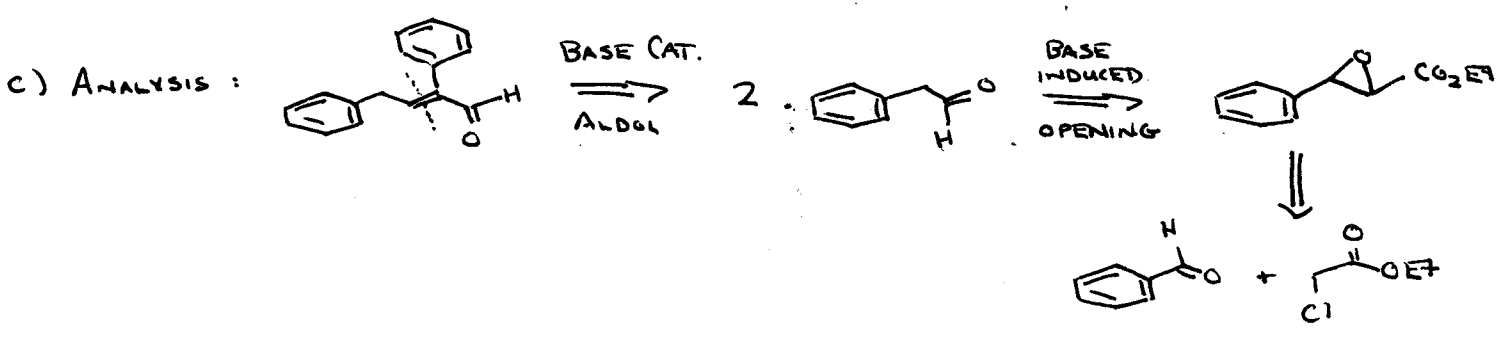 C) ANALYSIS :
H
O
BASE CAT.
ALDOL
2 .
O
H
BASE
INDUCED
OPENING
O
CO2Et
H
O
+
O
OEt
Cl